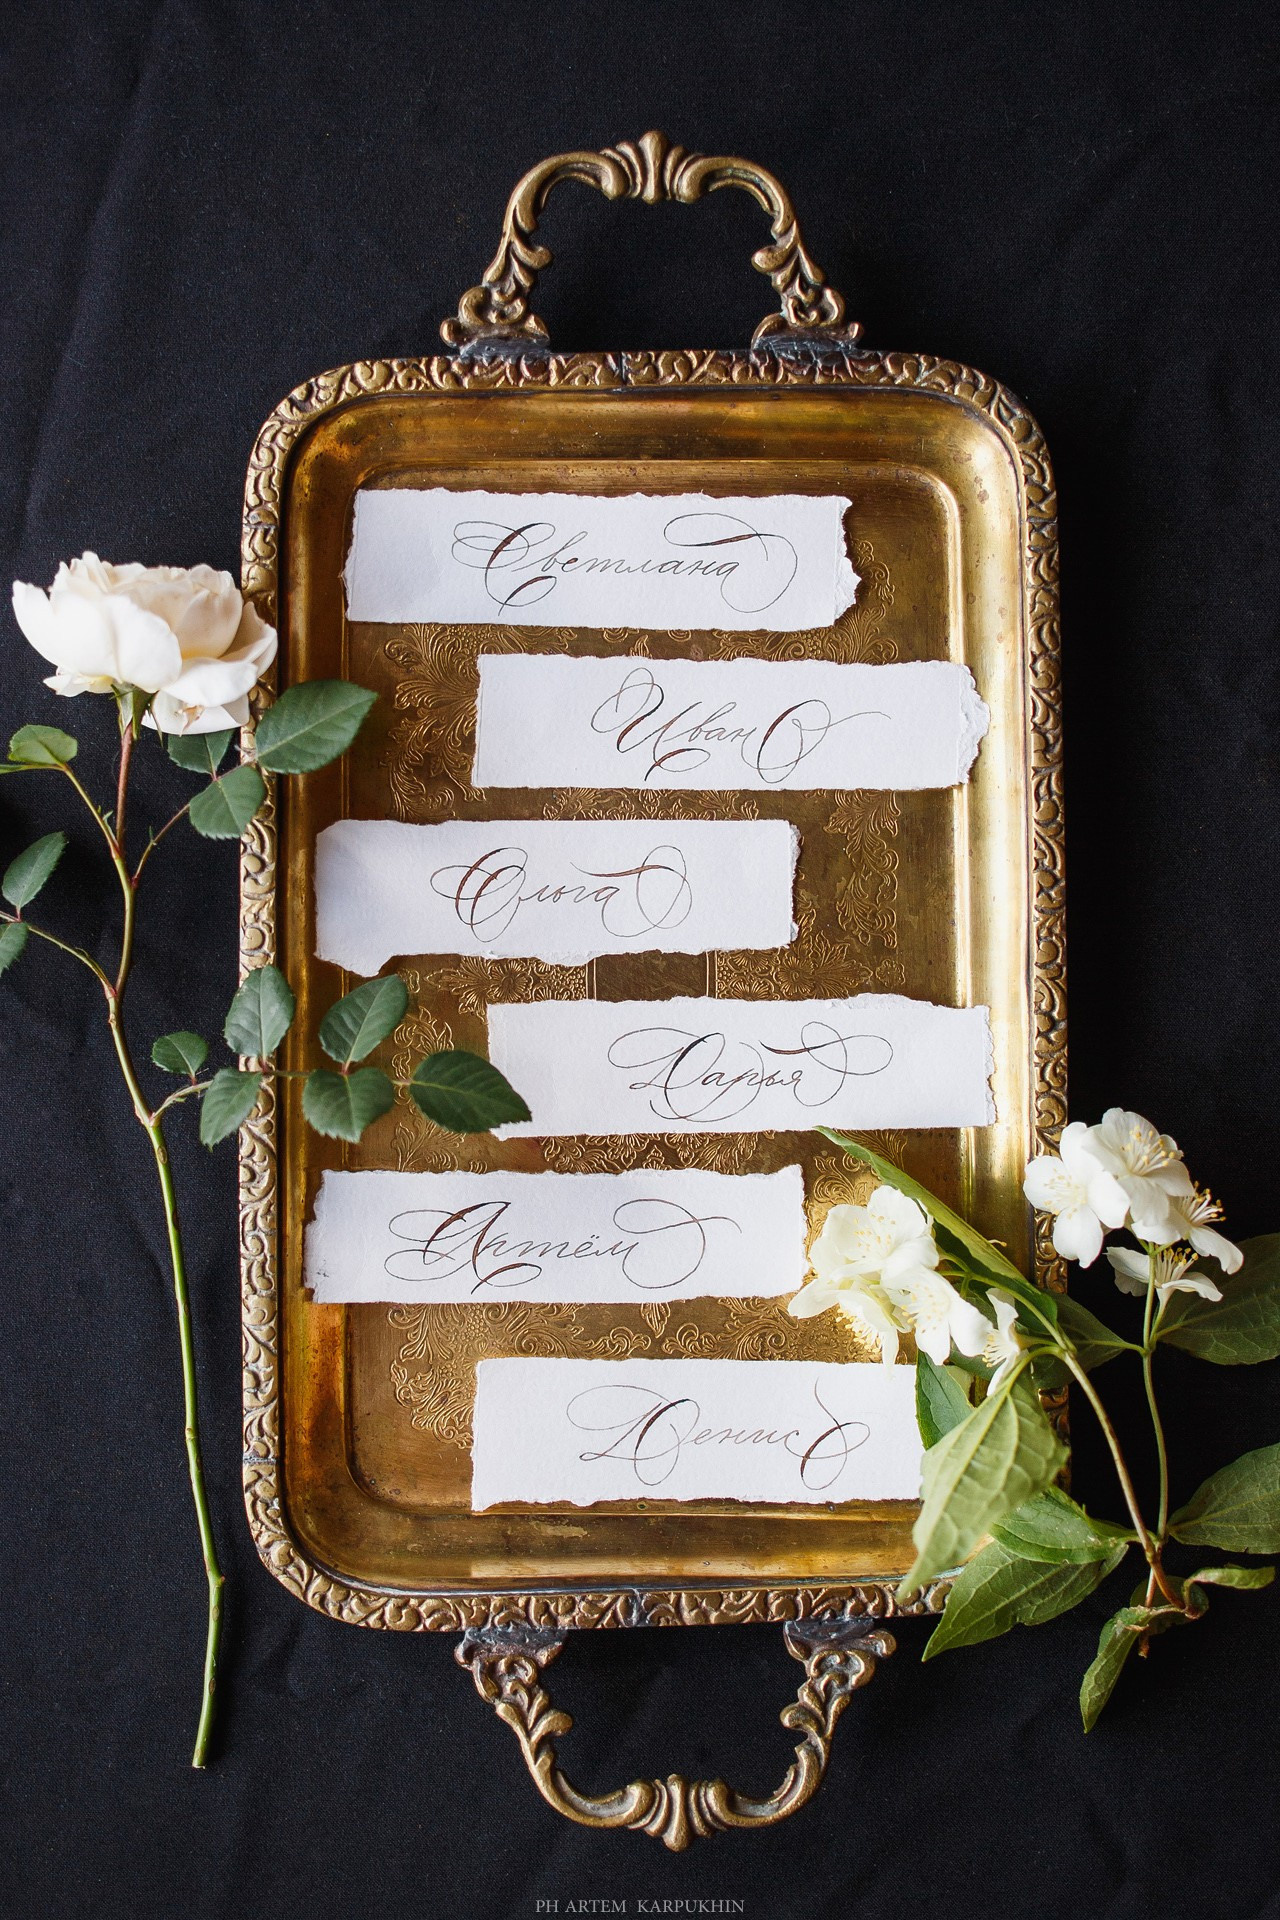 Светлана
Иван
Ольга
Дарья
Артём
Денис
PH ARTEM KARPUKHIN